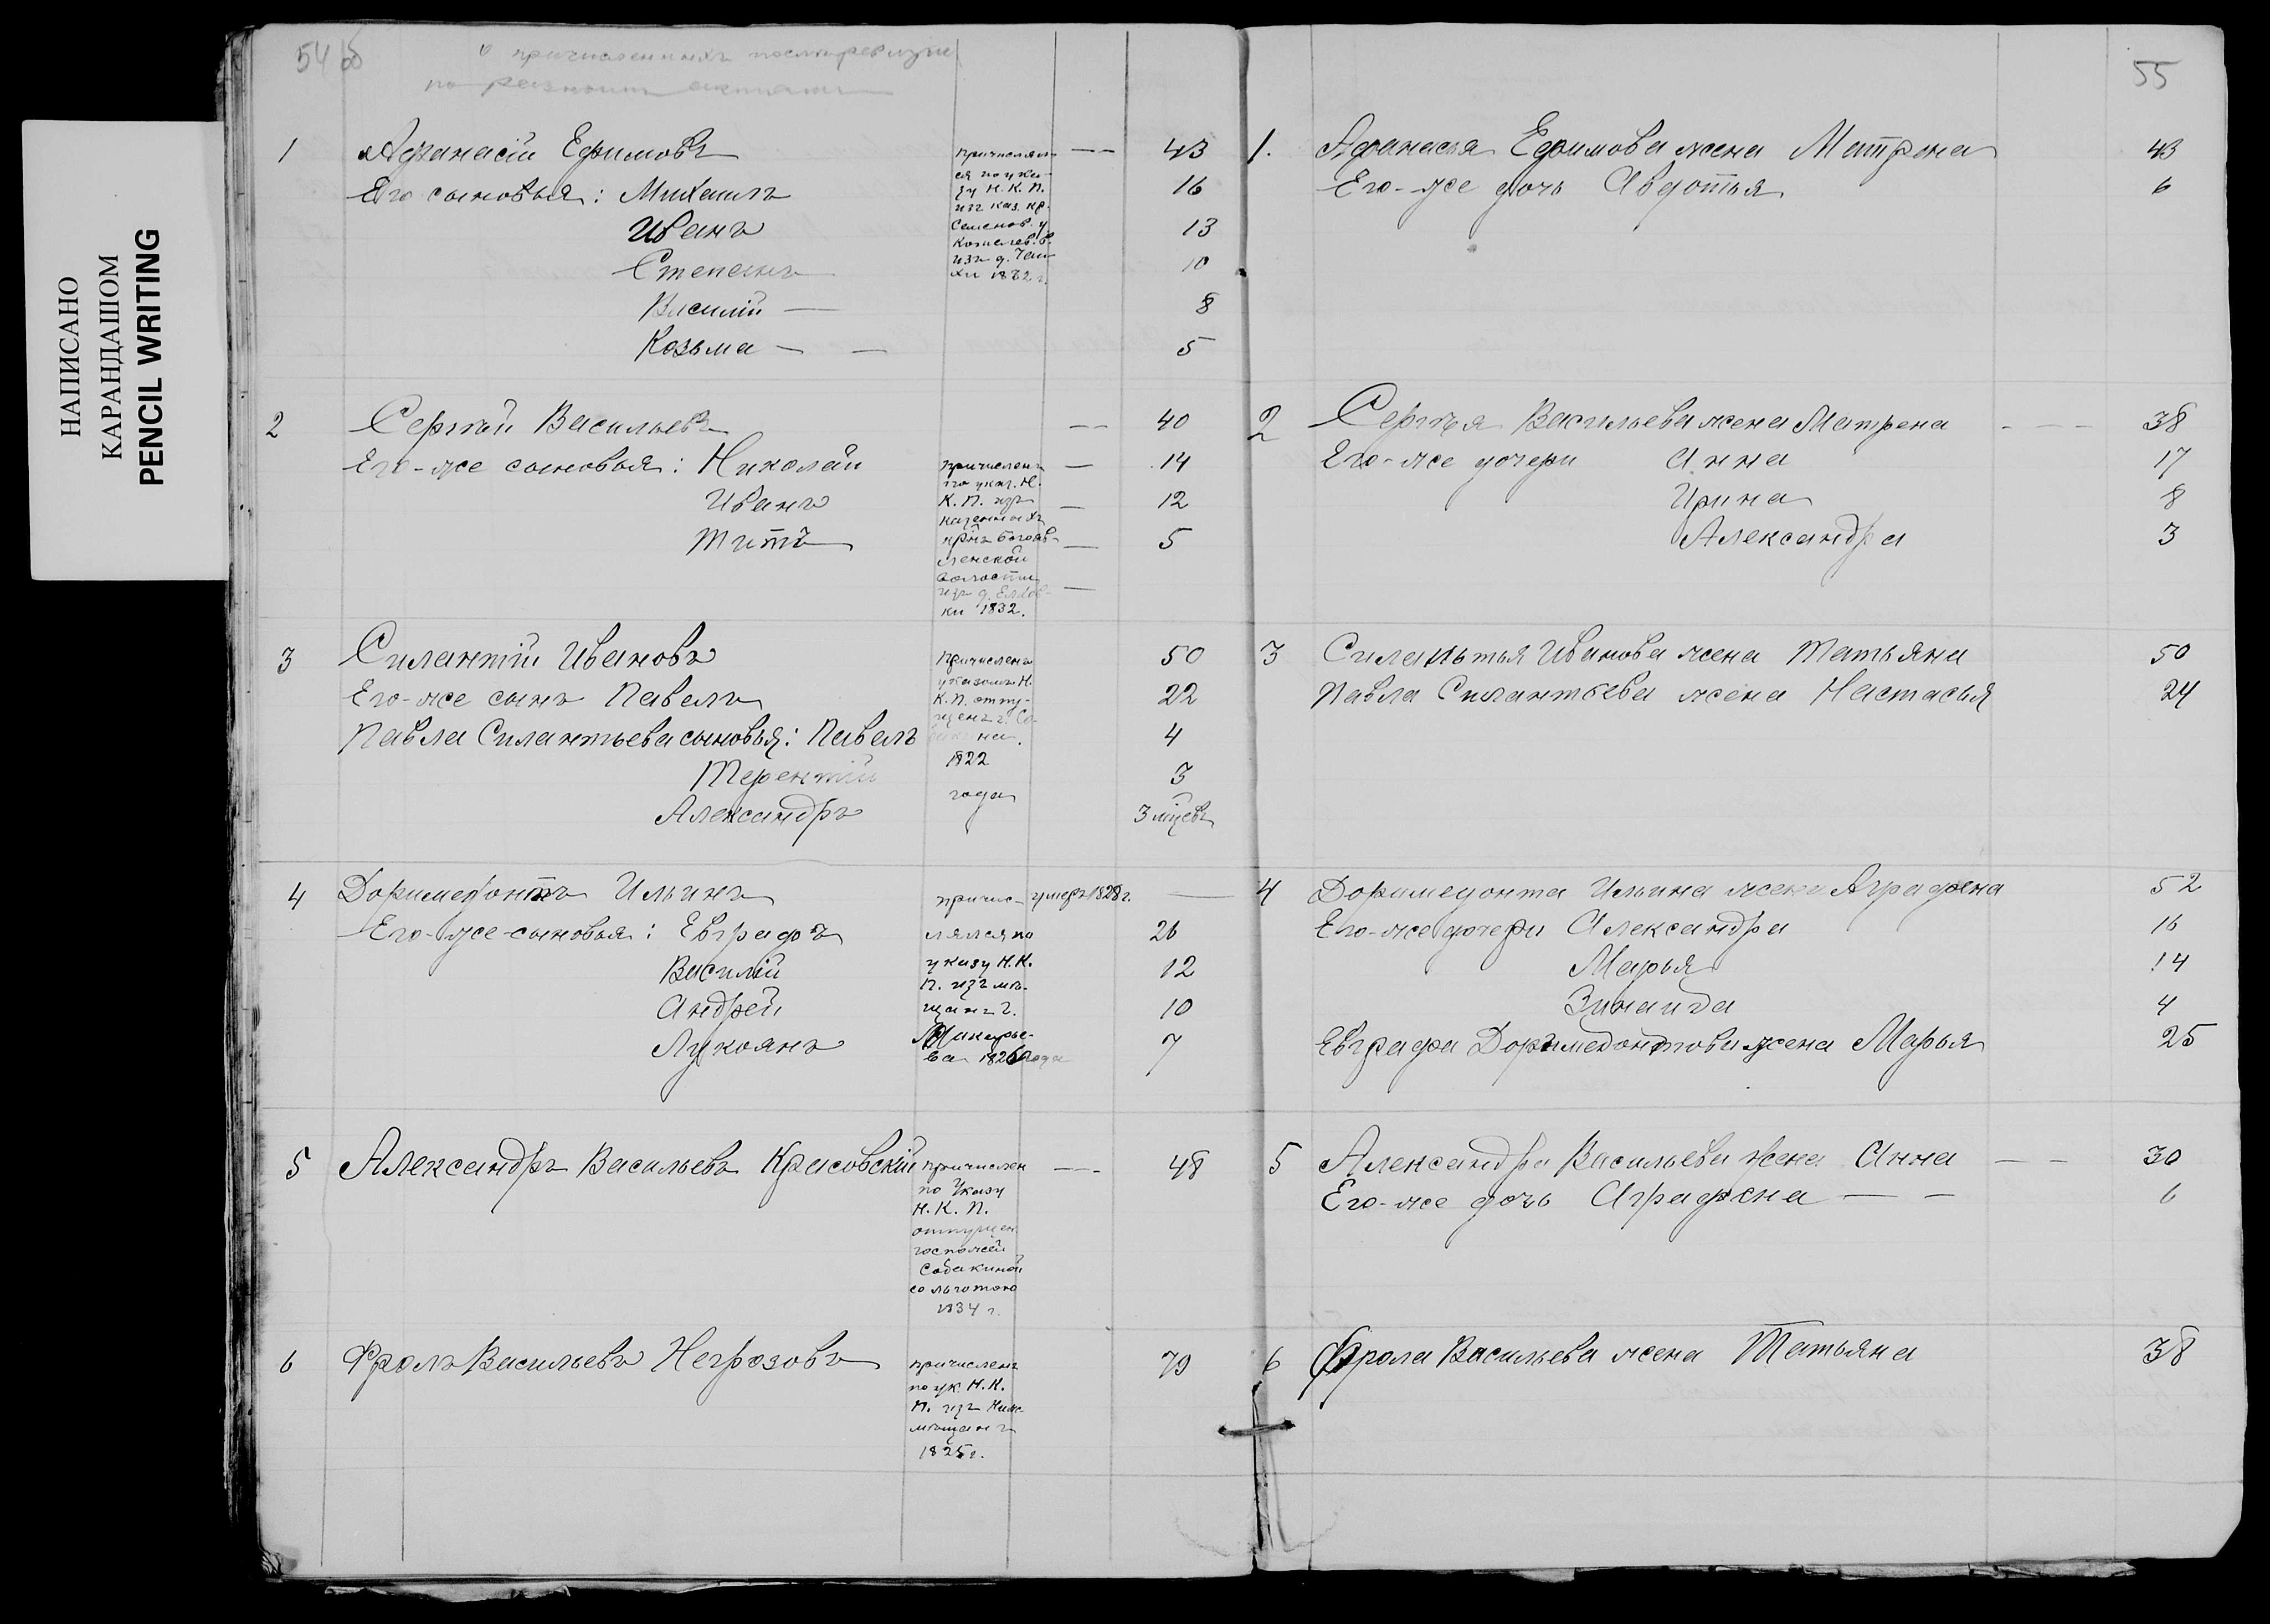 НАПИСАНО
КАРАНДАШОМ
PENCIL WRITING
54 об
о причисленныхъ послѣ ревизіи
по разнымъ актамъ
1 Афанасій Ефимовъ — 43
Его сыновья: Михаилъ 16
Иванъ 13
Степанъ 10
Василій — 8
Козьма — — 5
причислял-
ся по ука-
зу Н. К. П.
изъ каз. кр.
Семенов. у.
Кошелев. в.
изъ д.
хи 1832 г.
2 Сергѣй Васильевъ — 40
Его-же сыновья: Николай — 14
Иванъ — 12
Титъ — 5
причисленъ
по указ. Н.
К. П. изъ
казенныхъ
крнъ Богояв-
ленской
волости
изъ д. Елхов-
ки 1832.
3 Силантій Ивановъ 50
Его-же сынъ Павелъ 22
Павла Силантьева сыновья: Павелъ 4
Терентій 3
Александръ 3 мцевъ
Причисленъ
указомъ Н.
К. П. отпу-
щенъ г. Со-
бакина.
1822
года
4 Доримедонтъ Ильинъ умеръ 1828 г. —
Его-же сыновья: Евграфъ 26
Василій 12
Андрей 10
Лукоянъ 7
причис-
лялся по
указу Н. К.
П. изъ мѣ-
щанъ г.
Макарье-
ва 1826 года
5 Александръ Васильевъ Красовскій — 48
причислен
по Указу
Н. К. П.
отпущен
госпожей
Собакиной
со льготою
1834 г.
6 Фролъ Васильевъ Негрозовъ 79
причисленъ
по ук. Н. К.
П. изъ Ниж
мѣщанъ
1825 г.
55
1. Афанасья Ефимова жена Матрена 43
Его-же дочь Авдотья 6
2 Сергѣя Васильева жена Матрена - — — 38
Его-же дочери Анна 17
Ирина 8
Александра 3
3 Силантья Иванова жена Татьяна 50
Павла Силантьева жена Настасья 24
4 Доримедонта Ильина жена Аграфена 52
Его-же дочери Александра 16
Марья 14
Зинаида 4
Евграфа Доримедонтова жена Марья 25
5 Александра Васильева жена Анна — — 30
Его-же дочь Аграфена — — 6
6 Фрола Васильева жена Татьяна 38